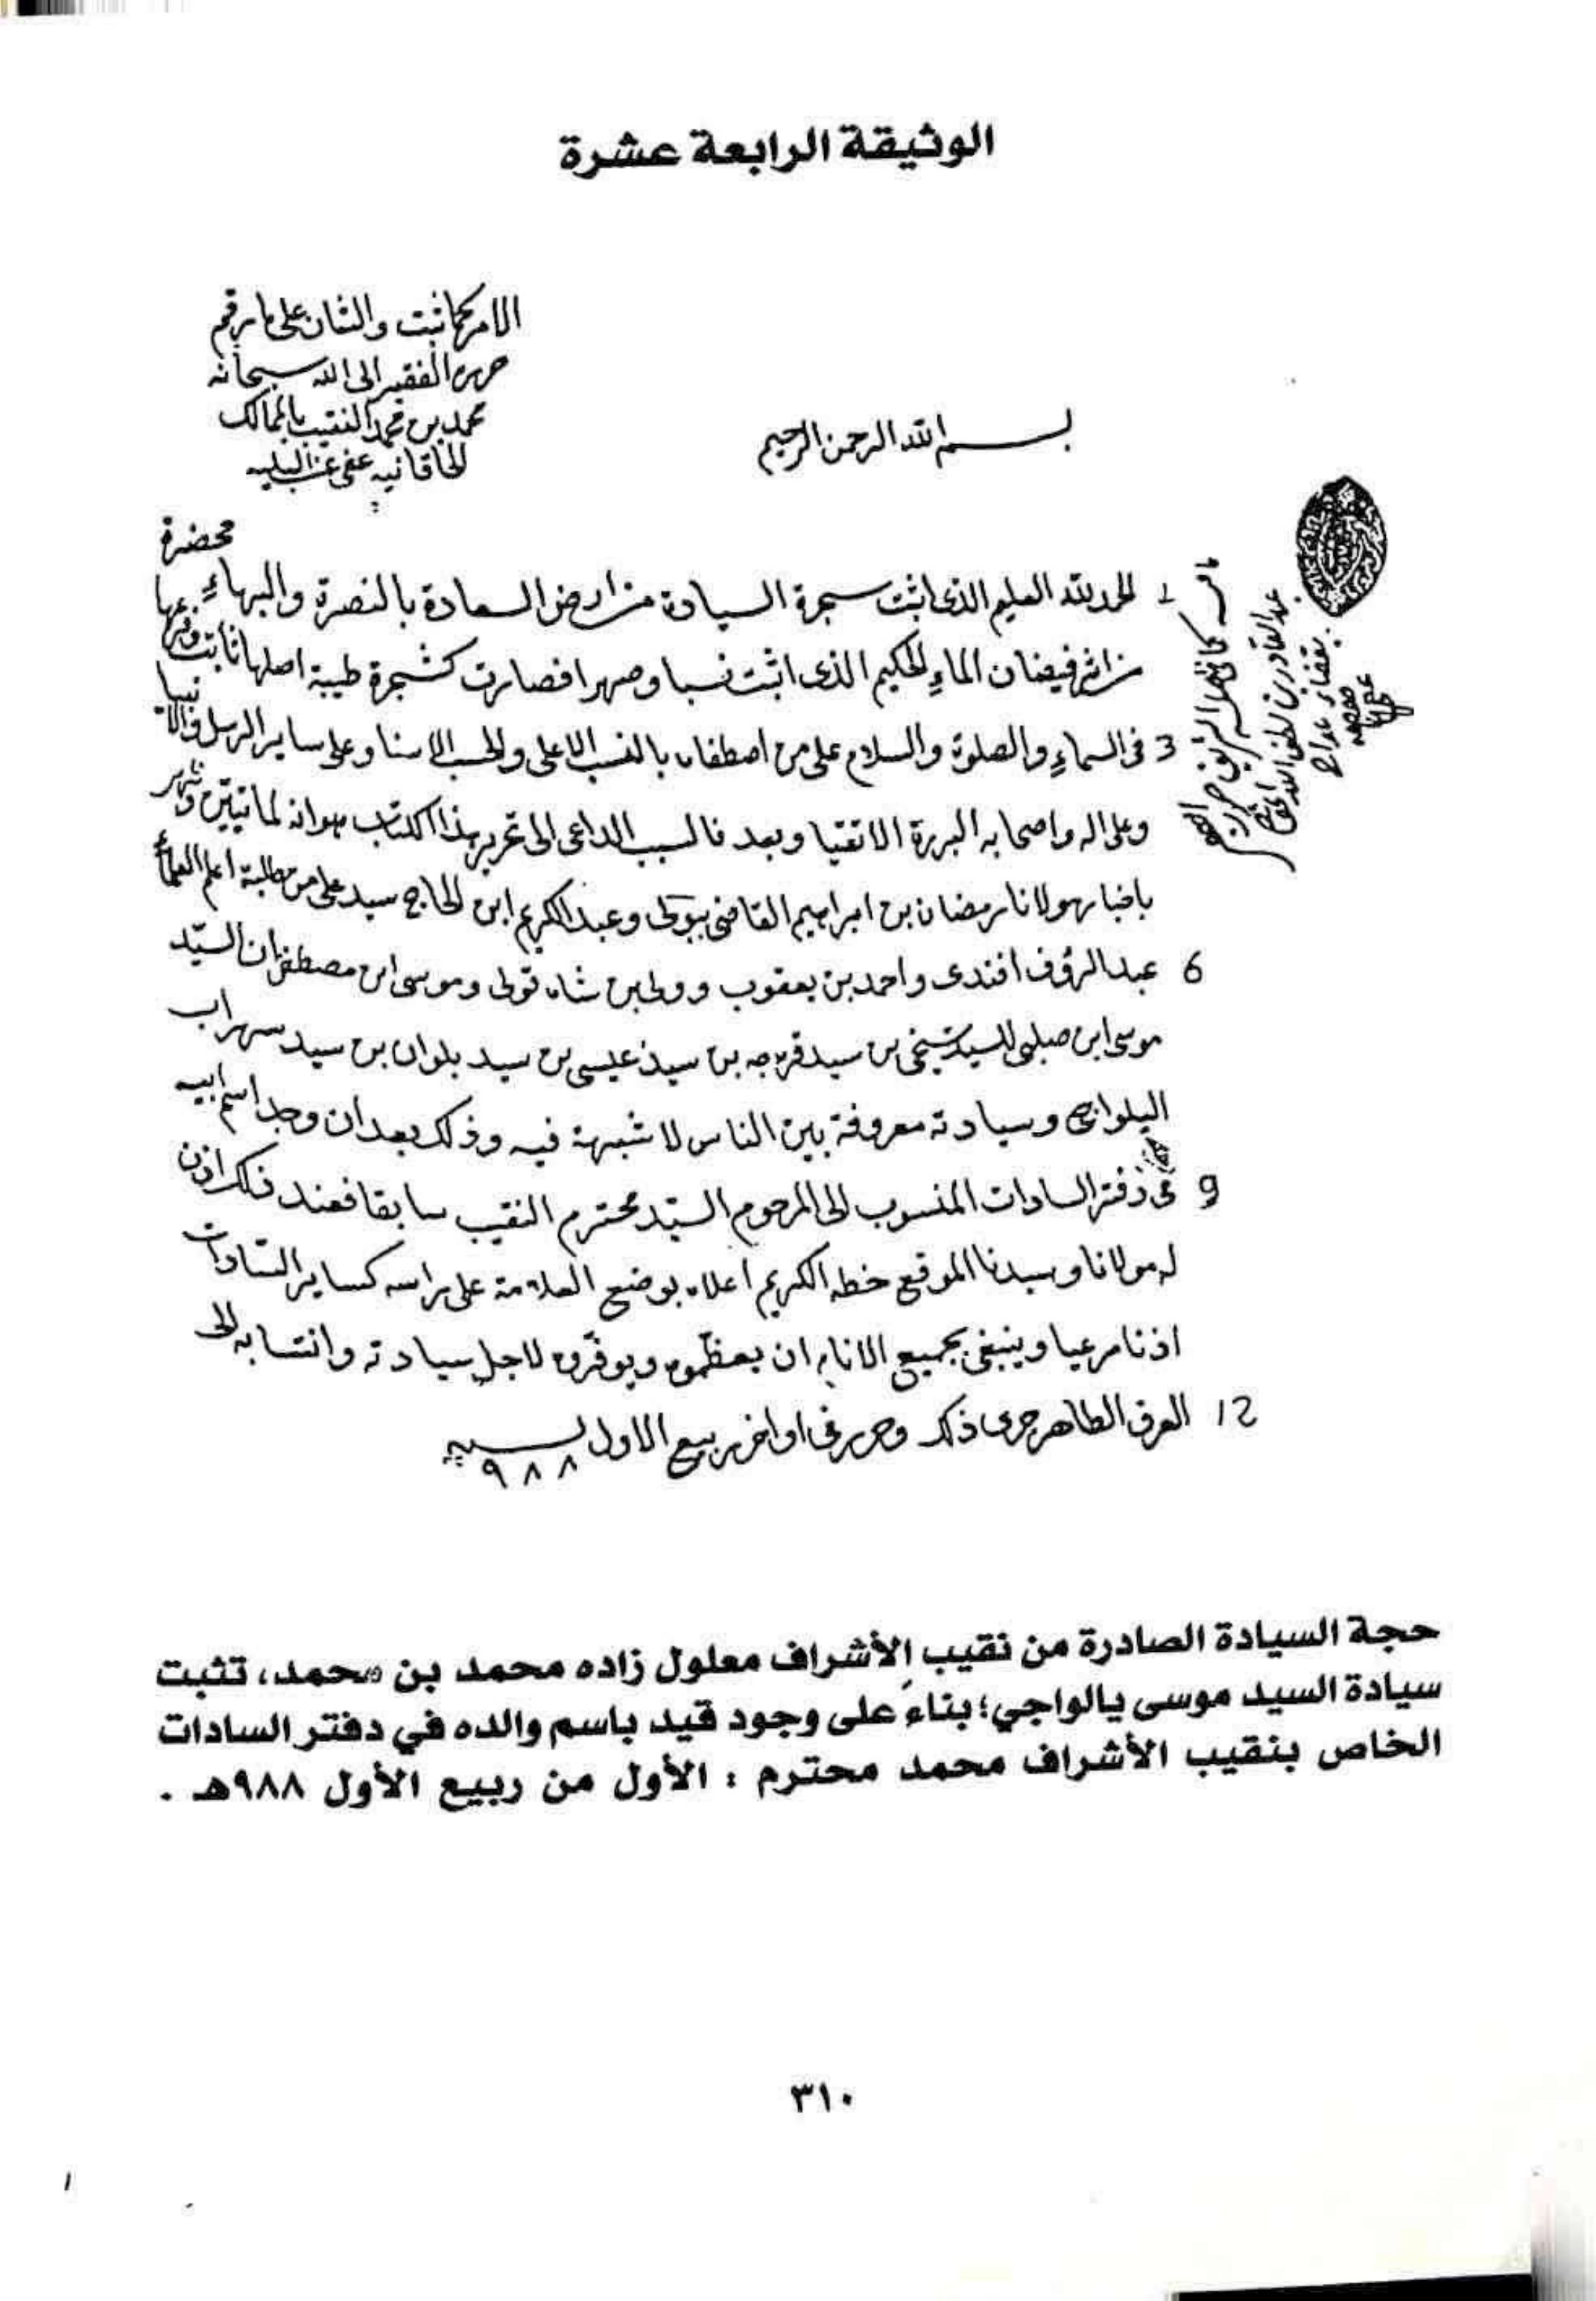 الوثيقة الرابعة عشرة
الامر كما ثبت والشان على ما رقم
حرره الفقير الى الله سبحانه
محمد بن محمد النقيب بالممالك
الخاقانيه عفى عن البليه
بسم الله الرحمن الرحيم
محضرة
1 الحمد لله العليم الذى اثبت شجرة السيادة من ارض السعادة بالنضرة والبهاء
من اثر فيضان الماء الحكيم الذى اثبت نسبا وصهرا فصارت كشجرة طيبة اصلها ثابت وفرعها
3 فى السماء والصلوة والسلام على من اصطفاه بالنسب الاعلى والحسب الاسنا وعلى ساير الرسل والانبيا
وعلى اله واصحابه البررة الاتقيا وبعد فالسبب الداعى الى تحرير هذا الكتاب هو انه لما تبين وظهر
باخبار مولانا رمضان بن ابراهيم القاضى ببولى وعبد الكريم ابن الحاج سيد على من طلبة اعلم العلماء
6 عبد الرؤف افندى واحمد بن يعقوب وولى بن شاه قولى وموسى ابن مصطفى ان السيد
موسى ابن صلبى للسيد شيخى بن سيد قره جه بن سيد عيسى بن سيد بلوان بن سيد سهراب
اليلواجى وسيادته معروفة بين الناس لا شبهة فيه وذلك بعد ان وجد اسم ابيه
9 فى دفتر السادات المنسوب الى المرحوم السيد محترم النقيب سابقا فعند ذلك اذن
له مولانا وسيدنا الموقع خطه الكريم اعلاه بوضع العلامة على راسه كساير السادات
اذنا مرعيا وينبغى بجميع الانام ان يعظموه ويوقروه لاجل سيادته وانتسابه الى
12 العرق الطاهر جرى ذلك وحرر فى اواخر ربيع الاول لسنه
٩٨٨
عبد القادر بن لطف الله
حجة السيادة الصادرة من نقيب الأشراف معلول زاده محمد بن محمد، تثبت
سيادة السيد موسى يالواجي؛ بناءً على وجود قيد باسم والده في دفتر السادات
الخاص بنقيب الأشراف محمد محترم : الأول من ربيع الأول ٩٨٨هـ .
٣١٠